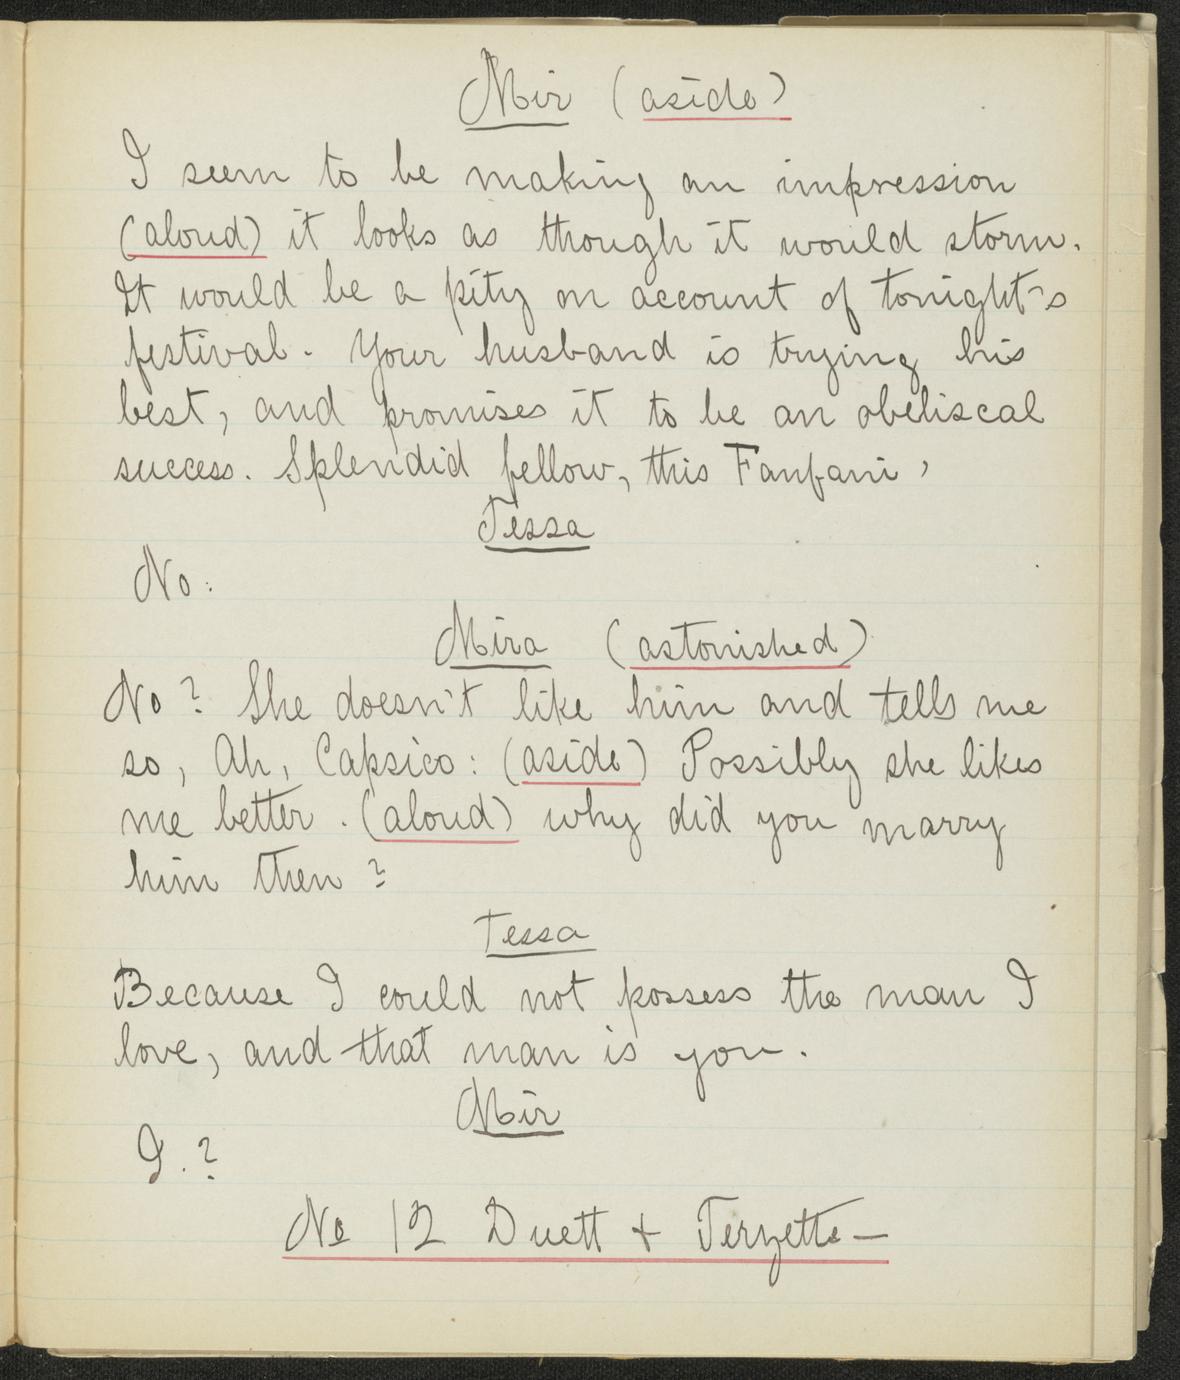 Mir (aside)
I seem to be making an impression
(aloud) it looks as though it would storm.
It would be a pity on account of tonight's
festival. Your husband is trying his
best, and promises it to be an obeliscal
success. Splendid fellow, this Fanfani,
Tessa
No:
Mira (astonished)
No? She doesn't like him and tells me
so, Ah, Capsico: (aside) Possibly she likes
me better. (aloud) why did you marry
him then?
Tessa
Because I could not possess the man I
love, and that man is you.
Mir
I.?
No 12 Duett + Terzette—